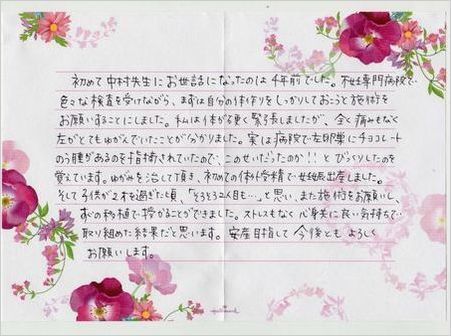 初めて中村先生にお世話になったのは4年前でした。不妊専門病院で…
色々な検査を受けながら、まずは自分の体作りをしっかりしておこうと施術を
お願いすることにしました。私は体が硬く緊張しましたが、全く痛みもなく
左がとてもゆがんでいたことが分かりました。実は病院で左卵巣にチョコレート
のう腫があるのを指摘されていたので、このせいだったのか!!とびっくりしたのを
覚えています。ゆがみを治して頂き、初めての体外受精で妊娠出産しました。
そして子供が2才を過ぎた頃、「そろそろ2人目も…」と思い、また施術をお願いし、
移植で授かることができました。ストレスもなく心身共に良い気持ちで…
取り組めた結果だと思います。安産目指して今後ともよろしく
お願いします。
Hallmark